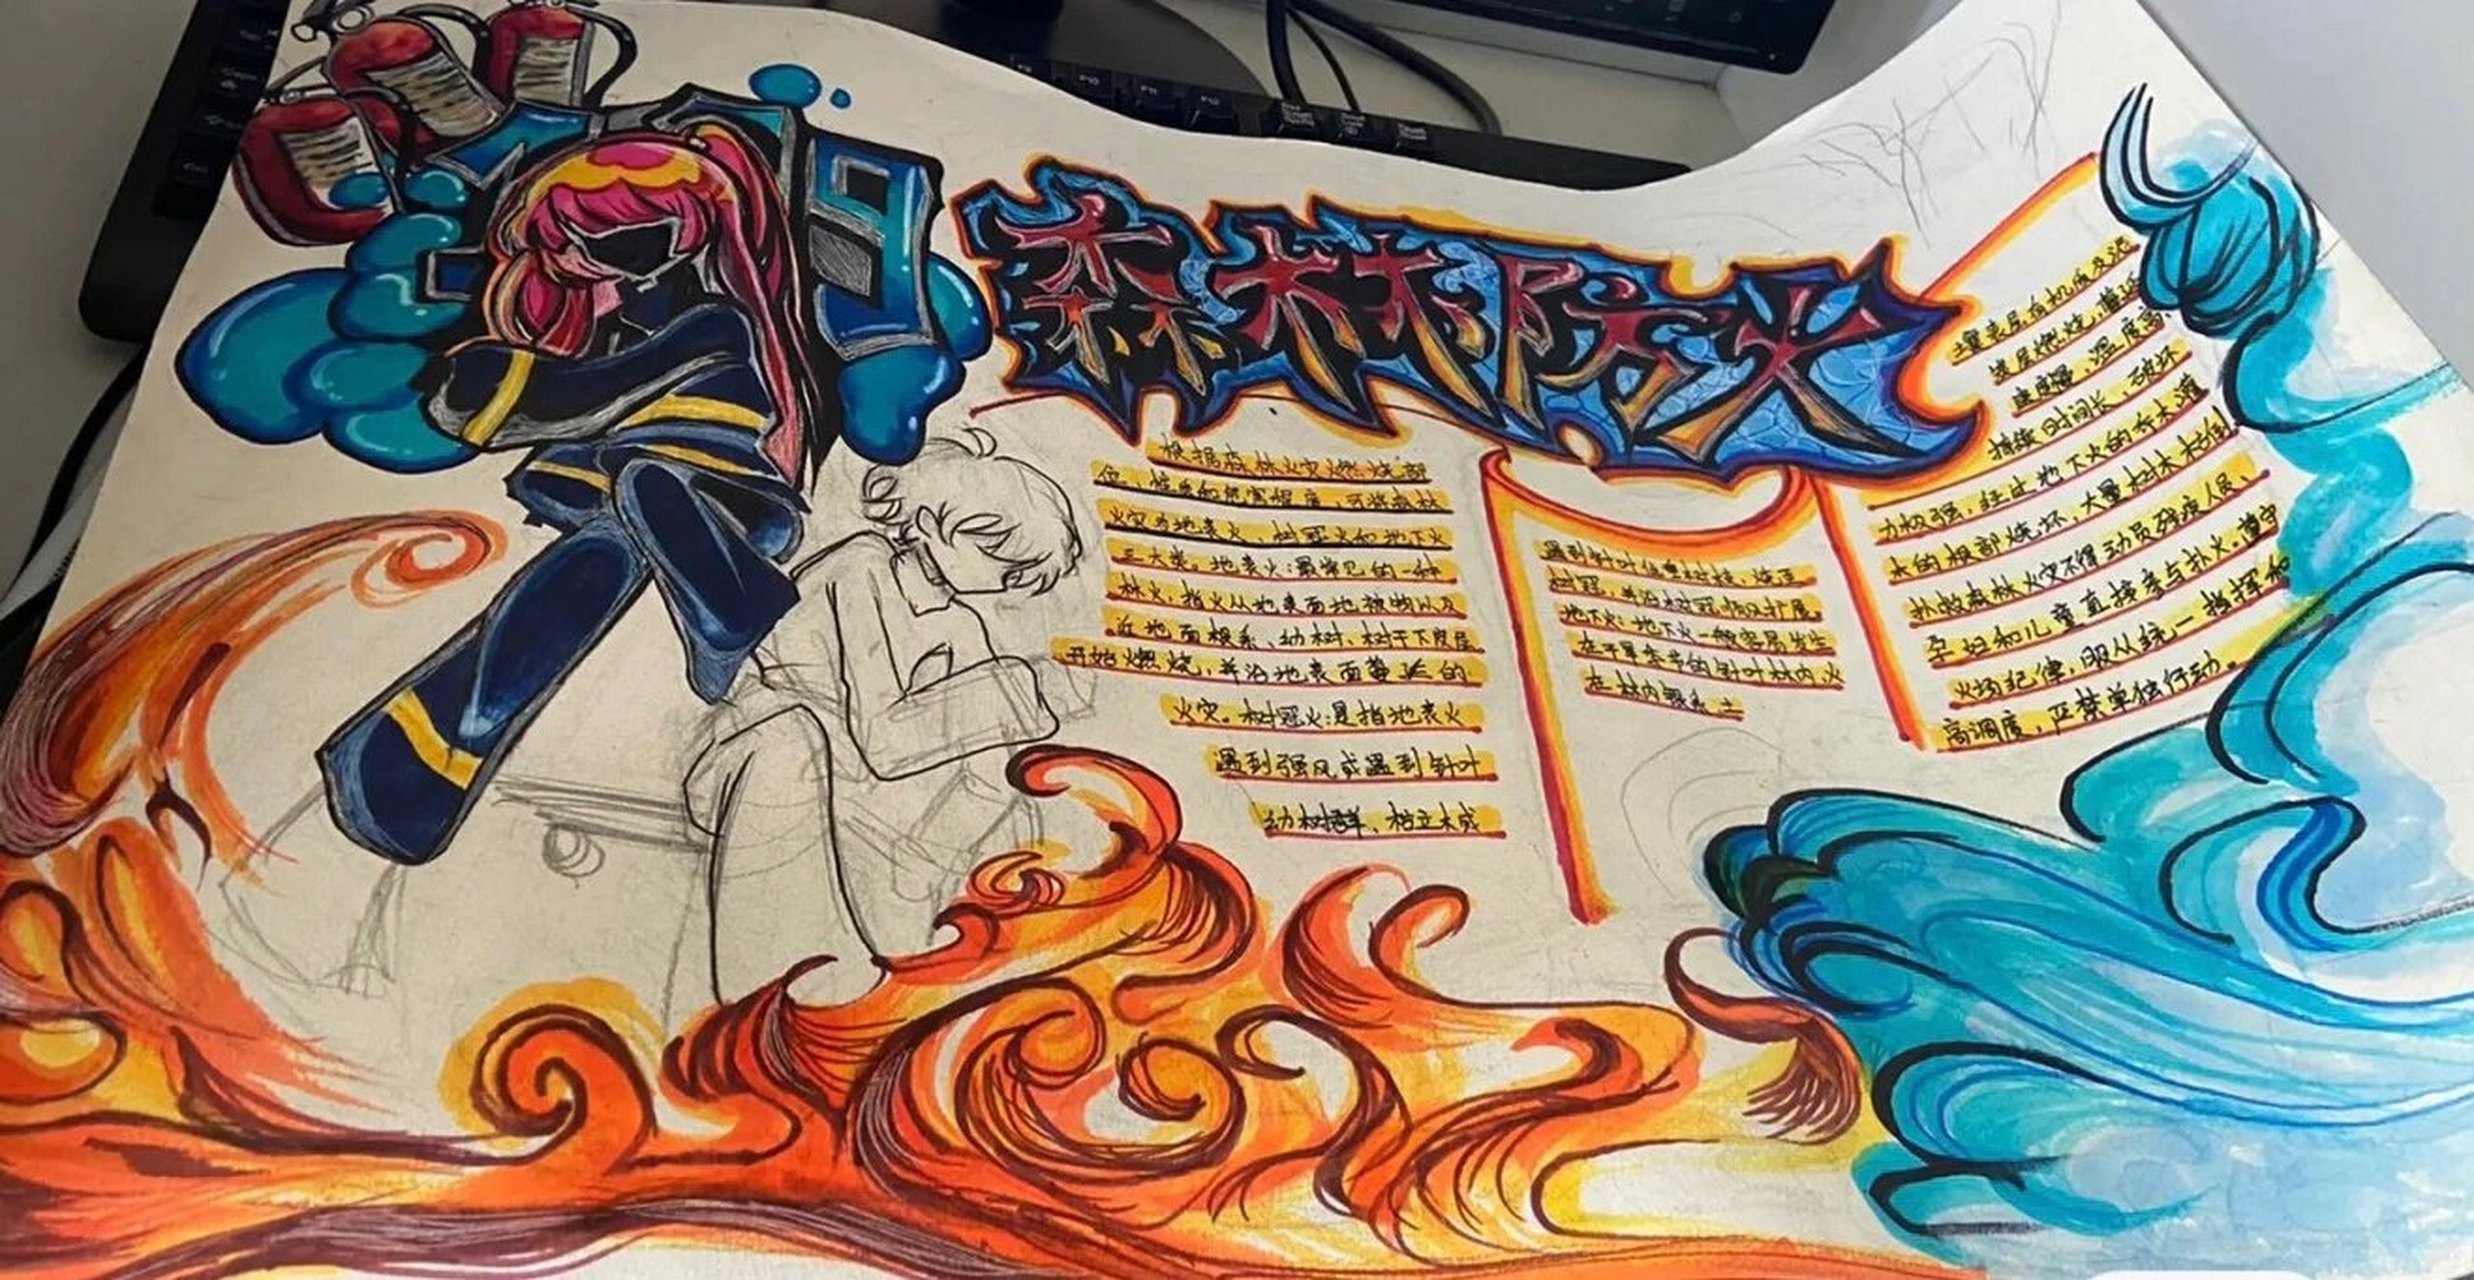 119
森林防火
根据森林火灾燃烧部
位、性质和危害程度，可将森林
火灾为地表火、树冠火和地下火
三大类。地表火：最常见的一种
林火，指火从地表面地被物以及
近地面根系、幼树、树干下皮层
开始燃烧，并沿地表面蔓延的
火灾。树冠火：是指地表火
遇到强风或遇到针叶
幼树群、枯立木或
遇到针叶幼树群、烧至
树冠，并沿树冠顺风扩展。
地下火：地下火一般容易发生
在干旱季节的针叶林内，火
在林内根系土
壤表层有机质及泥
炭层燃烧，蔓延
速度慢，温度高，
持续时间长，破坏
力极强，经过地下火的乔木灌
木的根部烧坏，大量树木枯倒
扑救森林火灾不得动员残疾人员、
孕妇和儿童直接参与扑火。遵守
火场纪律，服从统一指挥和
高调度，严禁单独行动。